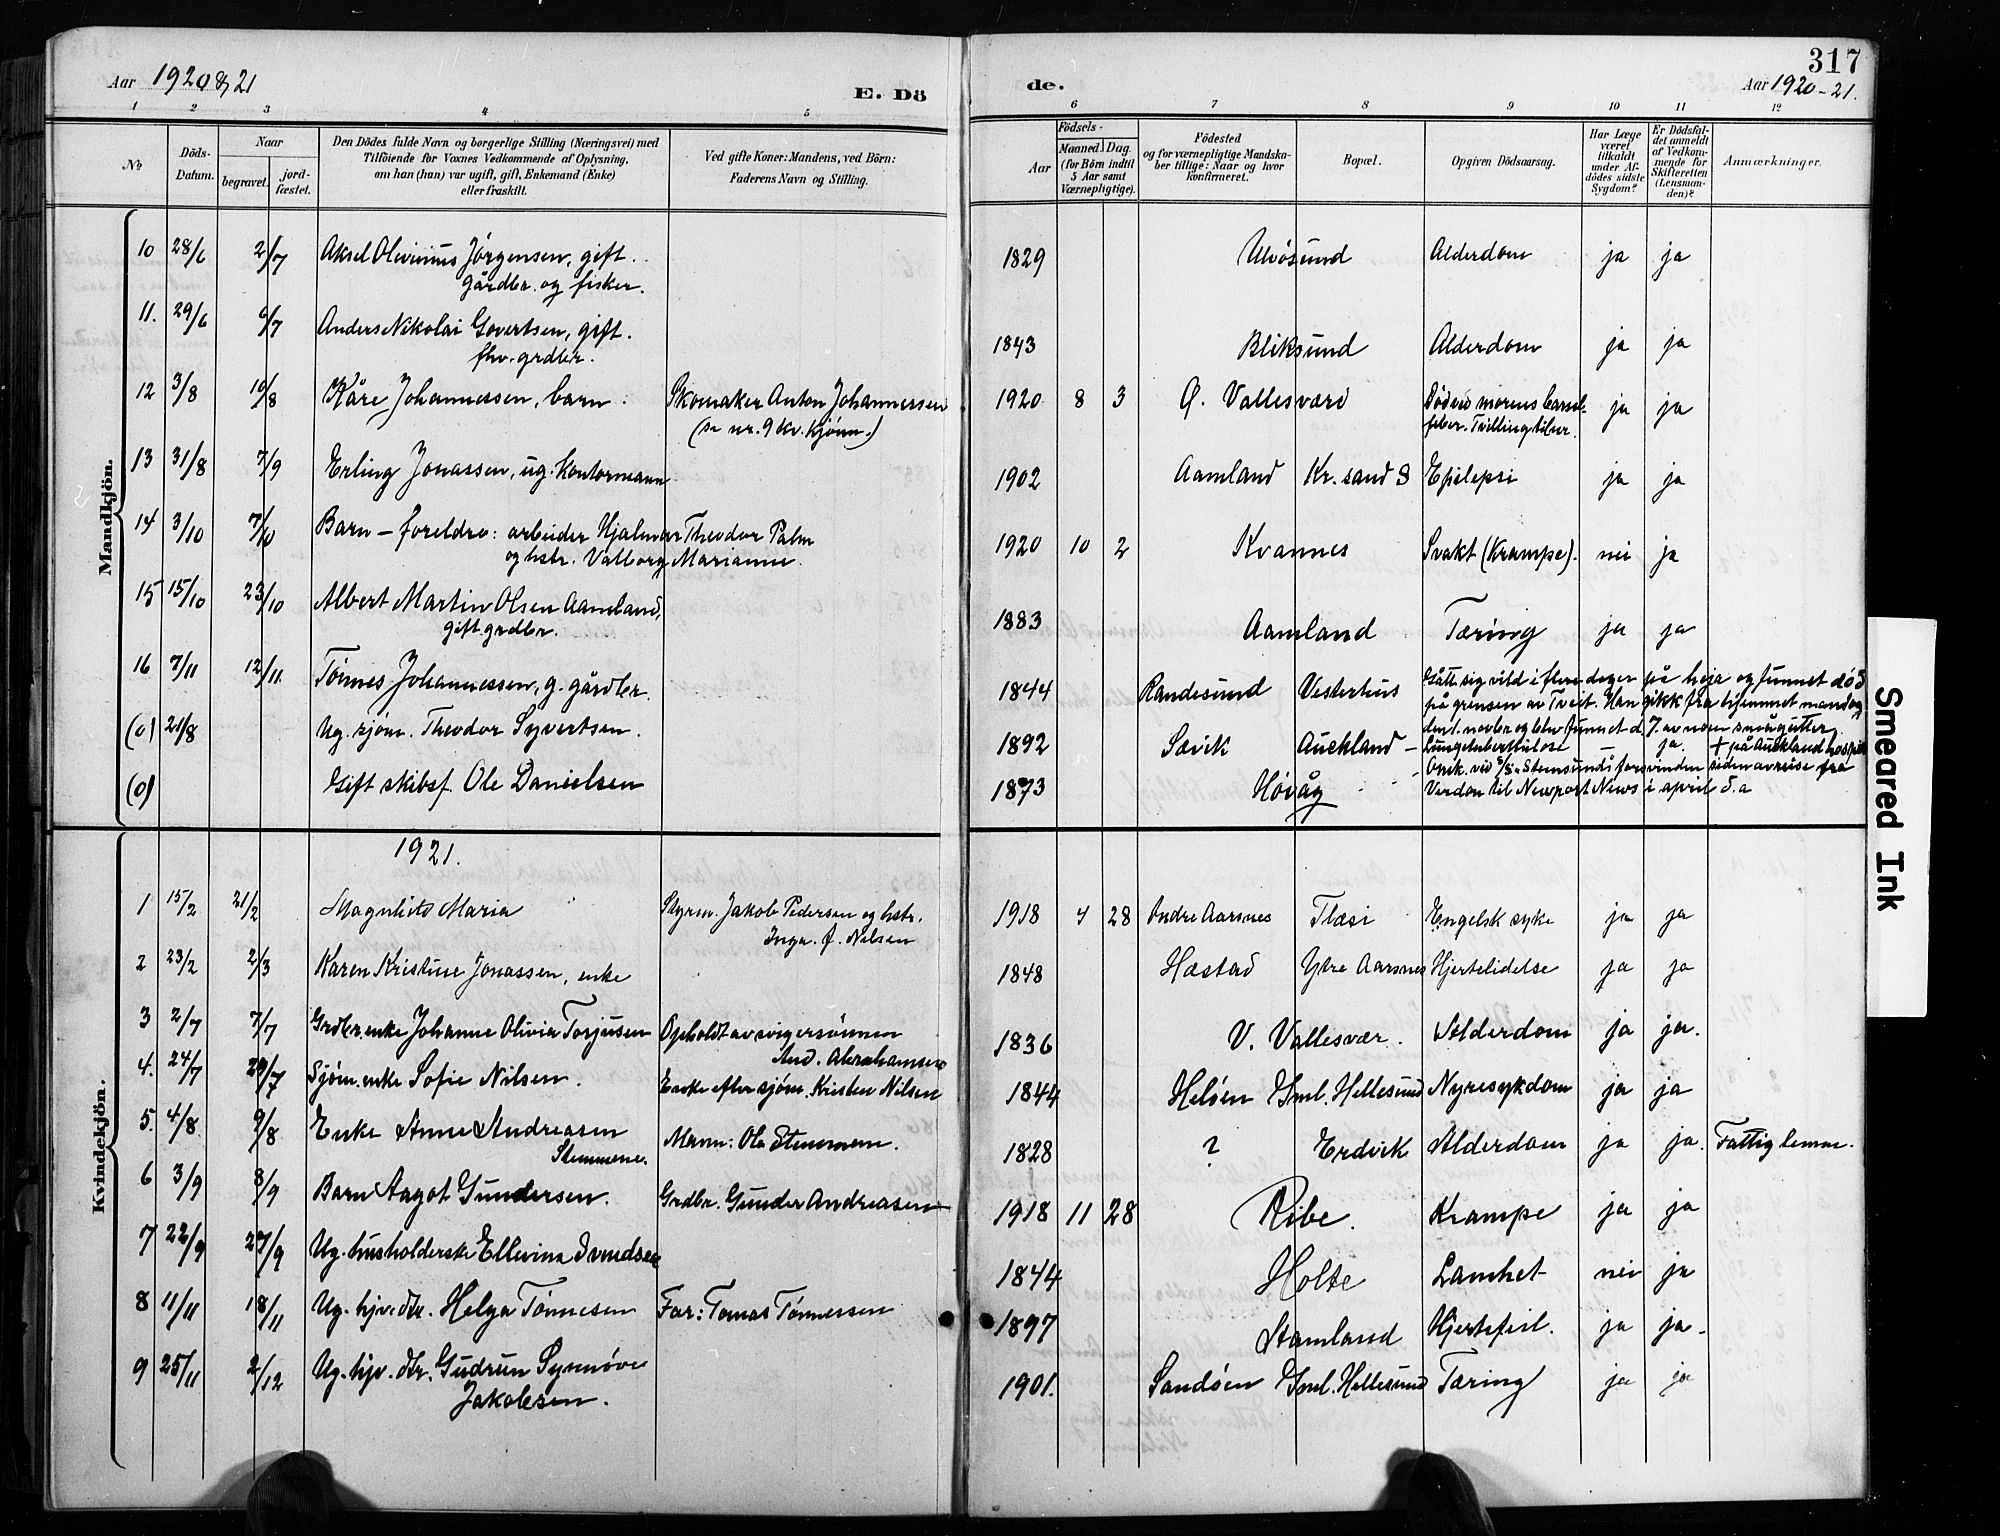 Aar 1920 & 21
E. Dö
de.
317
Aar 1920-21.
1 2 3 4 5 6 7 8 9 10 11 12
No
Döds-Datum.
Naar
begravet.
jord-fæstet.
Den Dödes fulde Navn og borgerlige Stilling (Næringsvei) med
Tilföiende for Voxnes Vedkommende af Oplysning,
om han (hun) var ugift, gift, Enkemand (Enke)
eller fraskilt.
Ved gifte Koner: Mandens, ved Börn:
Faderens Navn og Stilling.
Födsels-
Aar
Maaned. Dag.
(for Börn indtil
5 Aar samt
Værnepligtige).
Födested
og for værnepligtige Mandska-
ber tillige: Naar og hvor
konfirmeret.
Bopæl.
Opgiven Dödsaarsag.
Har Læge
været
tilkaldt
under Af-
dödes sidste
Sygdom?
Er Dödsfal-
det anmeldt
af Vedkom-
mende for
Skifteretten
(Lensman-
den)?
Anmærkninger.
Mandkjön.
10 28/6 2/7 Aksel Olivinus Jörgensen, gift. 1829 Ulvösund Alderdom ja ja
gårdbr. og fisker.
11. 29/6 6/7 Anders Nikolai Govertsen, gift. 1843 Bliksund Alderdom ja ja
fhv. grdbr.
12 3/8 10/8 Kåre Johannessen, barn. Skomaker Anton Johannessen 1920 8 3 Ø. Vallesværd Død ved morens barsel- ja ja
(se nr. 9 kv. kjønn.) feber. Tvilling tilver.
13 31/8 7/9 Erling Jonassen, ug. kontormann 1902 Aamland Kr.sand S Epilepsi ja ja
14 3/10 7/10 Barn - foreldre: arbeider Hjalmar Theodor Palm 1920 10 2 Kvannes Svakt (Krampe). nei ja
og hstr. Valborg Marianne.
15 15/10 23/10 Albert Martin Olsen Aamland, 1883 Aamland Tæring ja ja
gift. grdbr.
16 7/11 12/11. Tönnes Johannessen, g. gårdbr. 1844 Randesund Vesterhus Gått sig vild i flere dager på heia og funnet död
på grensen av Tveit. Han gikk fra hjemmet mandag
den 1. novbr og blev funnet d. 7. av noen smågutter.
(0) 21/8 Ug. sjöm. Theodor Syvertsen. 1892 Sævik Auckland - Lungetuberkulose - ja. + på Auckland hospit.
(0) Gift skibsf Ole Danielsen 1873 Hövåg - Omk. ved S/S. Stemsund i forsvinden siden avreise fra
Verdon til Newport News i april d. a
Kvindekjön.
1921.
1 15/2 21/2 Magnhild Maria Styrm. Jakob Pedersen og hstr. 1918 4 28 Indre Aarsnes Flæsi Engelsk syke ja ja
Inga. f. Nilsen
2 23/2 2/3 Karen Kristine Jonassen, enke 1848 Hæstad Ytre Aarsnes Hjertelidelse ja ja
3 2/7 7/7 Grdbr.enke Johanne Olivia Torjusen Opholdt av svigersönnen 1836 V. Vallesvær. Alderdom ja ja.
And. Abrahamsen
4. 24/7 29/7 Sjöm. enke Sofie Nilsen. Enke efter sjöm. Kristen Nilsen 1844 Helöen Gml. Hellesund Nyresykdom ja ja
5. 4/8 9/8 Enke Anne Andreasen Mann: Ole Stemmene. 1828 ? Erdvik Alderdom ja ja. Fattiglemm.
Stemmene.
6 3/9 8/9 Barn Aagot Gundersen. Grdbr. Gunder Andreasen 1918 11 28 Ribe. Krampe ja ja
7 22/9 27/9 Ug. husholderske Ellevine Svendsen 1844 Holte Lamhet nei ja
8 11/11 18/11 Ug. hjv. dtr. Helga Tönnesen Far: Tomas Tönnessen 1897 Stamland Hjertefeil. ja ja-
9 25/11 2/12 Ug. hjv. dtr. Gudrun Synnöve 1901. Sandöen Gml. Hellesund Tæring ja ja
Jakobsen.
Smeared Ink